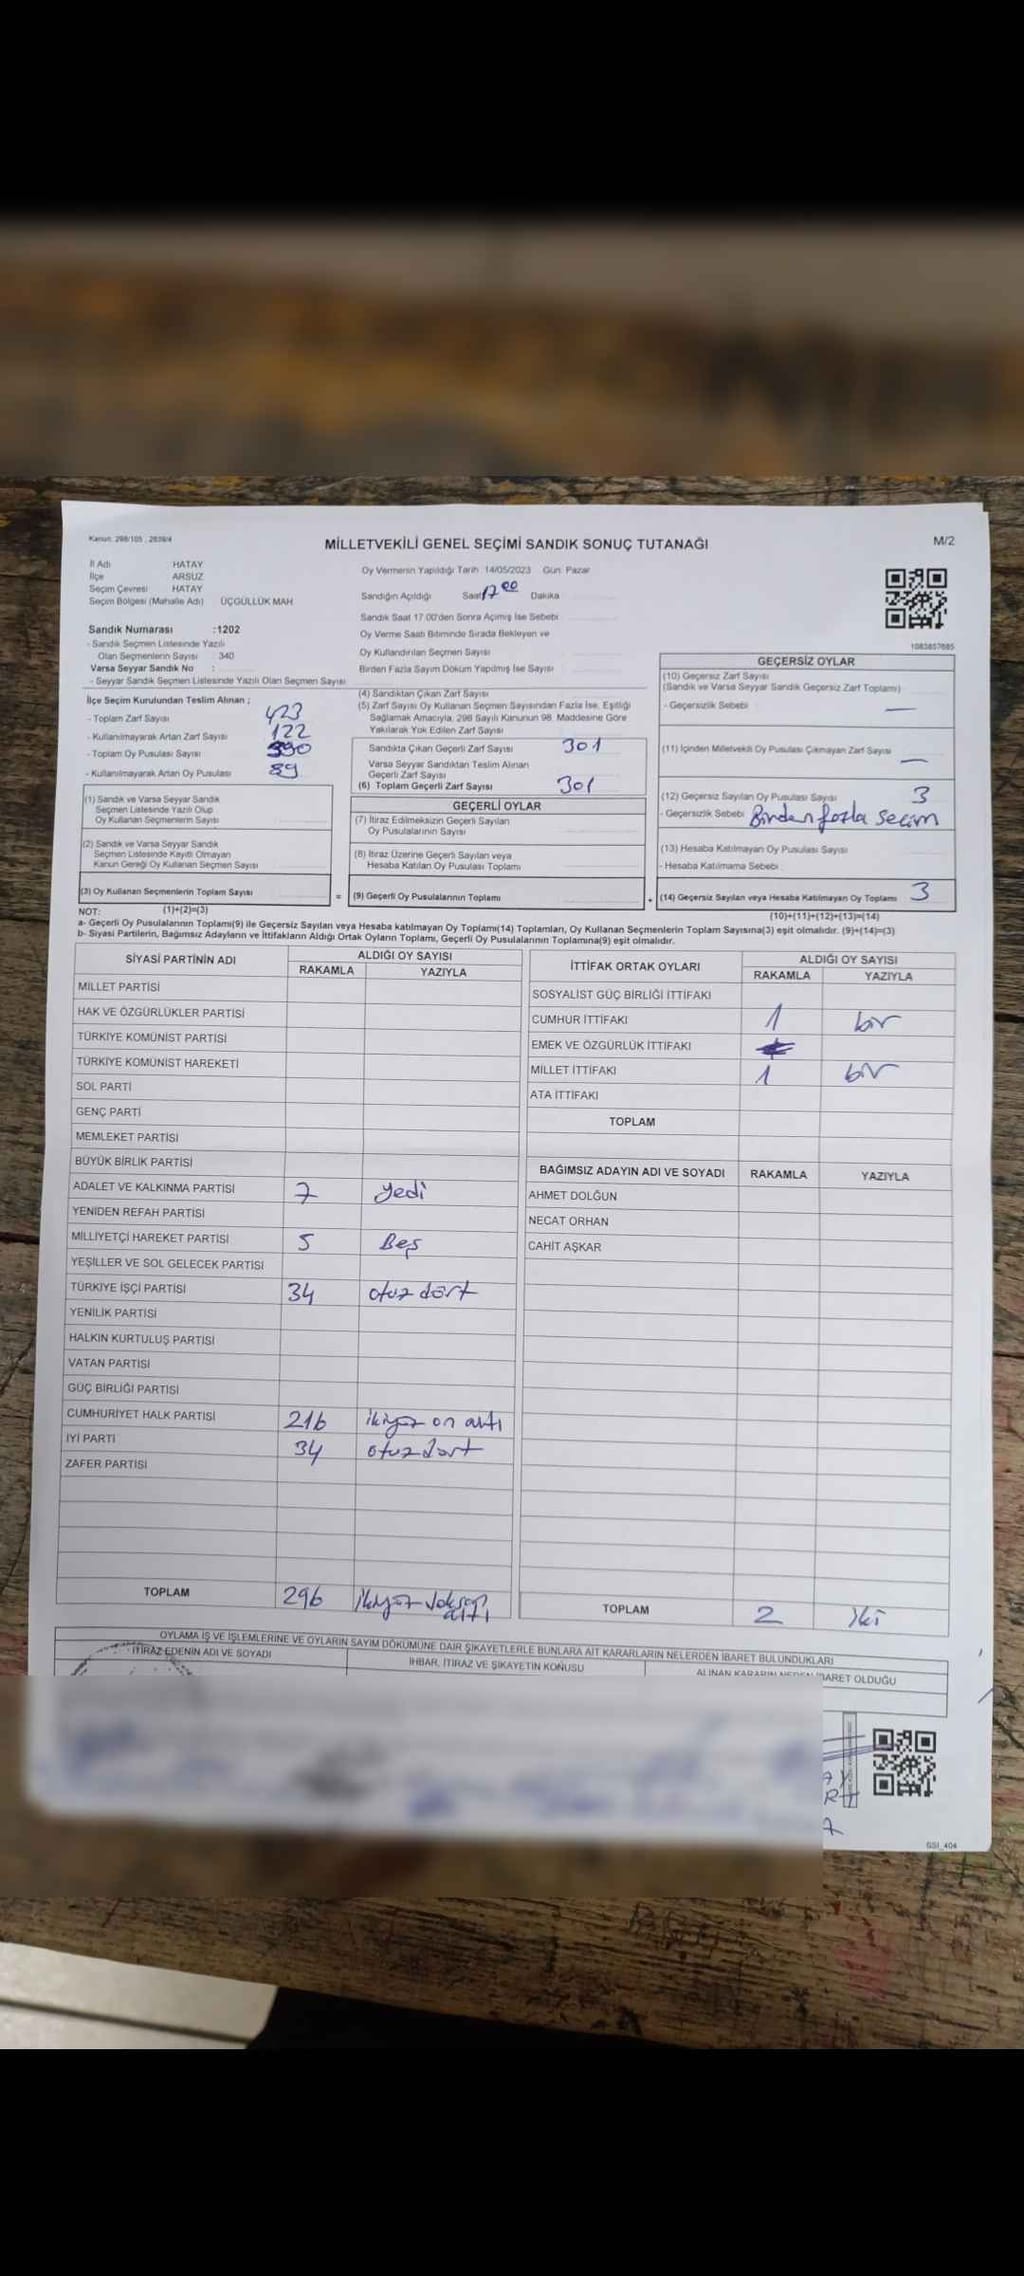 Kanun: 298/105 , 2839/4
MİLLETVEKİLİ GENEL SEÇİMİ SANDIK SONUÇ TUTANAĞI
M/2
İl Adı HATAY
İlçe ARSUZ
Seçim Çevresi HATAY
Seçim Bölgesi (Mahalle Adı) ÜÇGÜLLÜK MAH
Sandık Numarası :1202
- Sandık Seçmen Listesinde Yazılı
Olan Seçmenlerin Sayısı : 340
Varsa Seyyar Sandık No :
- Seyyar Sandık Seçmen Listesinde Yazılı Olan Seçmen Sayısı
Oy Vermenin Yapıldığı Tarih 14/05/2023 Gün: Pazar
Sandığın Açıldığı Saat 17 00 Dakika
Sandık Saat 17.00'den Sonra Açılmış İse Sebebi
Oy Verme Saati Bitiminde Sırada Bekleyen ve
Oy Kullandırılan Seçmen Sayısı
Birden Fazla Sayım Döküm Yapılmış İse Sayısı
1083857685
İlçe Seçim Kurulundan Teslim Alınan ;
- Toplam Zarf Sayısı 423
- Kullanılmayarak Artan Zarf Sayısı 122
- Toplam Oy Pusulası Sayısı 390
- Kullanılmayarak Artan Oy Pusulası 89
(1) Sandık ve Varsa Seyyar Sandık
Seçmen Listesinde Yazılı Olup
Oy Kullanan Seçmenlerin Sayısı
(2) Sandık ve Varsa Seyyar Sandık
Seçmen Listesinde Kayıtlı Olmayan
Kanun Gereği Oy Kullanan Seçmen Sayısı
(3) Oy Kullanan Seçmenlerin Toplam Sayısı
(1)+(2)=(3)
=
(4) Sandıktan Çıkan Zarf Sayısı
(5) Zarf Sayısı Oy Kullanan Seçmen Sayısından Fazla İse, Eşitliği
Sağlamak Amacıyla, 298 Sayılı Kanunun 98. Maddesine Göre
Yakılarak Yok Edilen Zarf Sayısı
Sandıkta Çıkan Geçerli Zarf Sayısı 301
Varsa Seyyar Sandıktan Teslim Alınan
Geçerli Zarf Sayısı
(6) Toplam Geçerli Zarf Sayısı 301
GEÇERLİ OYLAR
(7) İtiraz Edilmeksizin Geçerli Sayılan
Oy Pusulalarının Sayısı
(8) İtiraz Üzerine Geçerli Sayılan veya
Hesaba Katılan Oy Pusulası Toplamı
(9) Geçerli Oy Pusulalarının Toplamı
+
GEÇERSİZ OYLAR
(10) Geçersiz Zarf Sayısı
(Sandık ve Varsa Seyyar Sandık Geçersiz Zarf Toplamı)
- Geçersizlik Sebebi —
(11) İçinden Milletvekili Oy Pusulası Çıkmayan Zarf Sayısı —
(12) Geçersiz Sayılan Oy Pusulası Sayısı 3
- Geçersizlik Sebebi Birden fazla seçim
(13) Hesaba Katılmayan Oy Pusulası Sayısı
- Hesaba Katılmama Sebebi
(14) Geçersiz Sayılan veya Hesaba Katılmayan Oy Toplamı 3
(10)+(11)+(12)+(13)=(14)
NOT:
a- Geçerli Oy Pusulalarının Toplamı(9) ile Geçersiz Sayılan veya Hesaba katılmayan Oy Toplamı(14) Toplamları, Oy Kullanan Seçmenlerin Toplam Sayısına(3) eşit olmalıdır. (9)+(14)=(3)
b- Siyasi Partilerin, Bağımsız Adayların ve İttifakların Aldığı Ortak Oyların Toplamı, Geçerli Oy Pusulalarının Toplamına(9) eşit olmalıdır.
SİYASİ PARTİNİN ADI ALDIĞI OY SAYISI
RAKAMLA YAZIYLA
MİLLET PARTİSİ
HAK VE ÖZGÜRLÜKLER PARTİSİ
TÜRKİYE KOMÜNİST PARTİSİ
TÜRKİYE KOMÜNİST HAREKETİ
SOL PARTİ
GENÇ PARTİ
MEMLEKET PARTİSİ
BÜYÜK BİRLİK PARTİSİ
ADALET VE KALKINMA PARTİSİ 7 yedi
YENİDEN REFAH PARTİSİ
MİLLİYETÇİ HAREKET PARTİSİ 5 Beş
YEŞİLLER VE SOL GELECEK PARTİSİ
TÜRKİYE İŞÇİ PARTİSİ 34 otuz dört
YENİLİK PARTİSİ
HALKIN KURTULUŞ PARTİSİ
VATAN PARTİSİ
GÜÇ BİRLİĞİ PARTİSİ
CUMHURİYET HALK PARTİSİ 216 ikiyüz on altı
İYİ PARTİ 34 otuz dört
ZAFER PARTİSİ
TOPLAM 296 ikiyüz doksan altı
İTTİFAK ORTAK OYLARI ALDIĞI OY SAYISI
RAKAMLA YAZIYLA
SOSYALİST GÜÇ BİRLİĞİ İTTİFAKI
CUMHUR İTTİFAKI 1 bir
EMEK VE ÖZGÜRLÜK İTTİFAKI
MİLLET İTTİFAKI 1 bir
ATA İTTİFAKI
TOPLAM
BAĞIMSIZ ADAYIN ADI VE SOYADI RAKAMLA YAZIYLA
AHMET DOLĞUN
NECAT ORHAN
CAHİT AŞKAR
TOPLAM 2 iki
OYLAMA İŞ VE İŞLEMLERİNE VE OYLARIN SAYIM DÖKÜMÜNE DAİR ŞİKAYETLERLE BUNLARA AİT KARARLARIN NELERDEN İBARET BULUNDUKLARI
İTİRAZ EDENİN ADI VE SOYADI İHBAR, İTİRAZ VE ŞİKAYETİN KONUSU ALINAN KARARIN NEDEN İBARET OLDUĞU
GSI_404